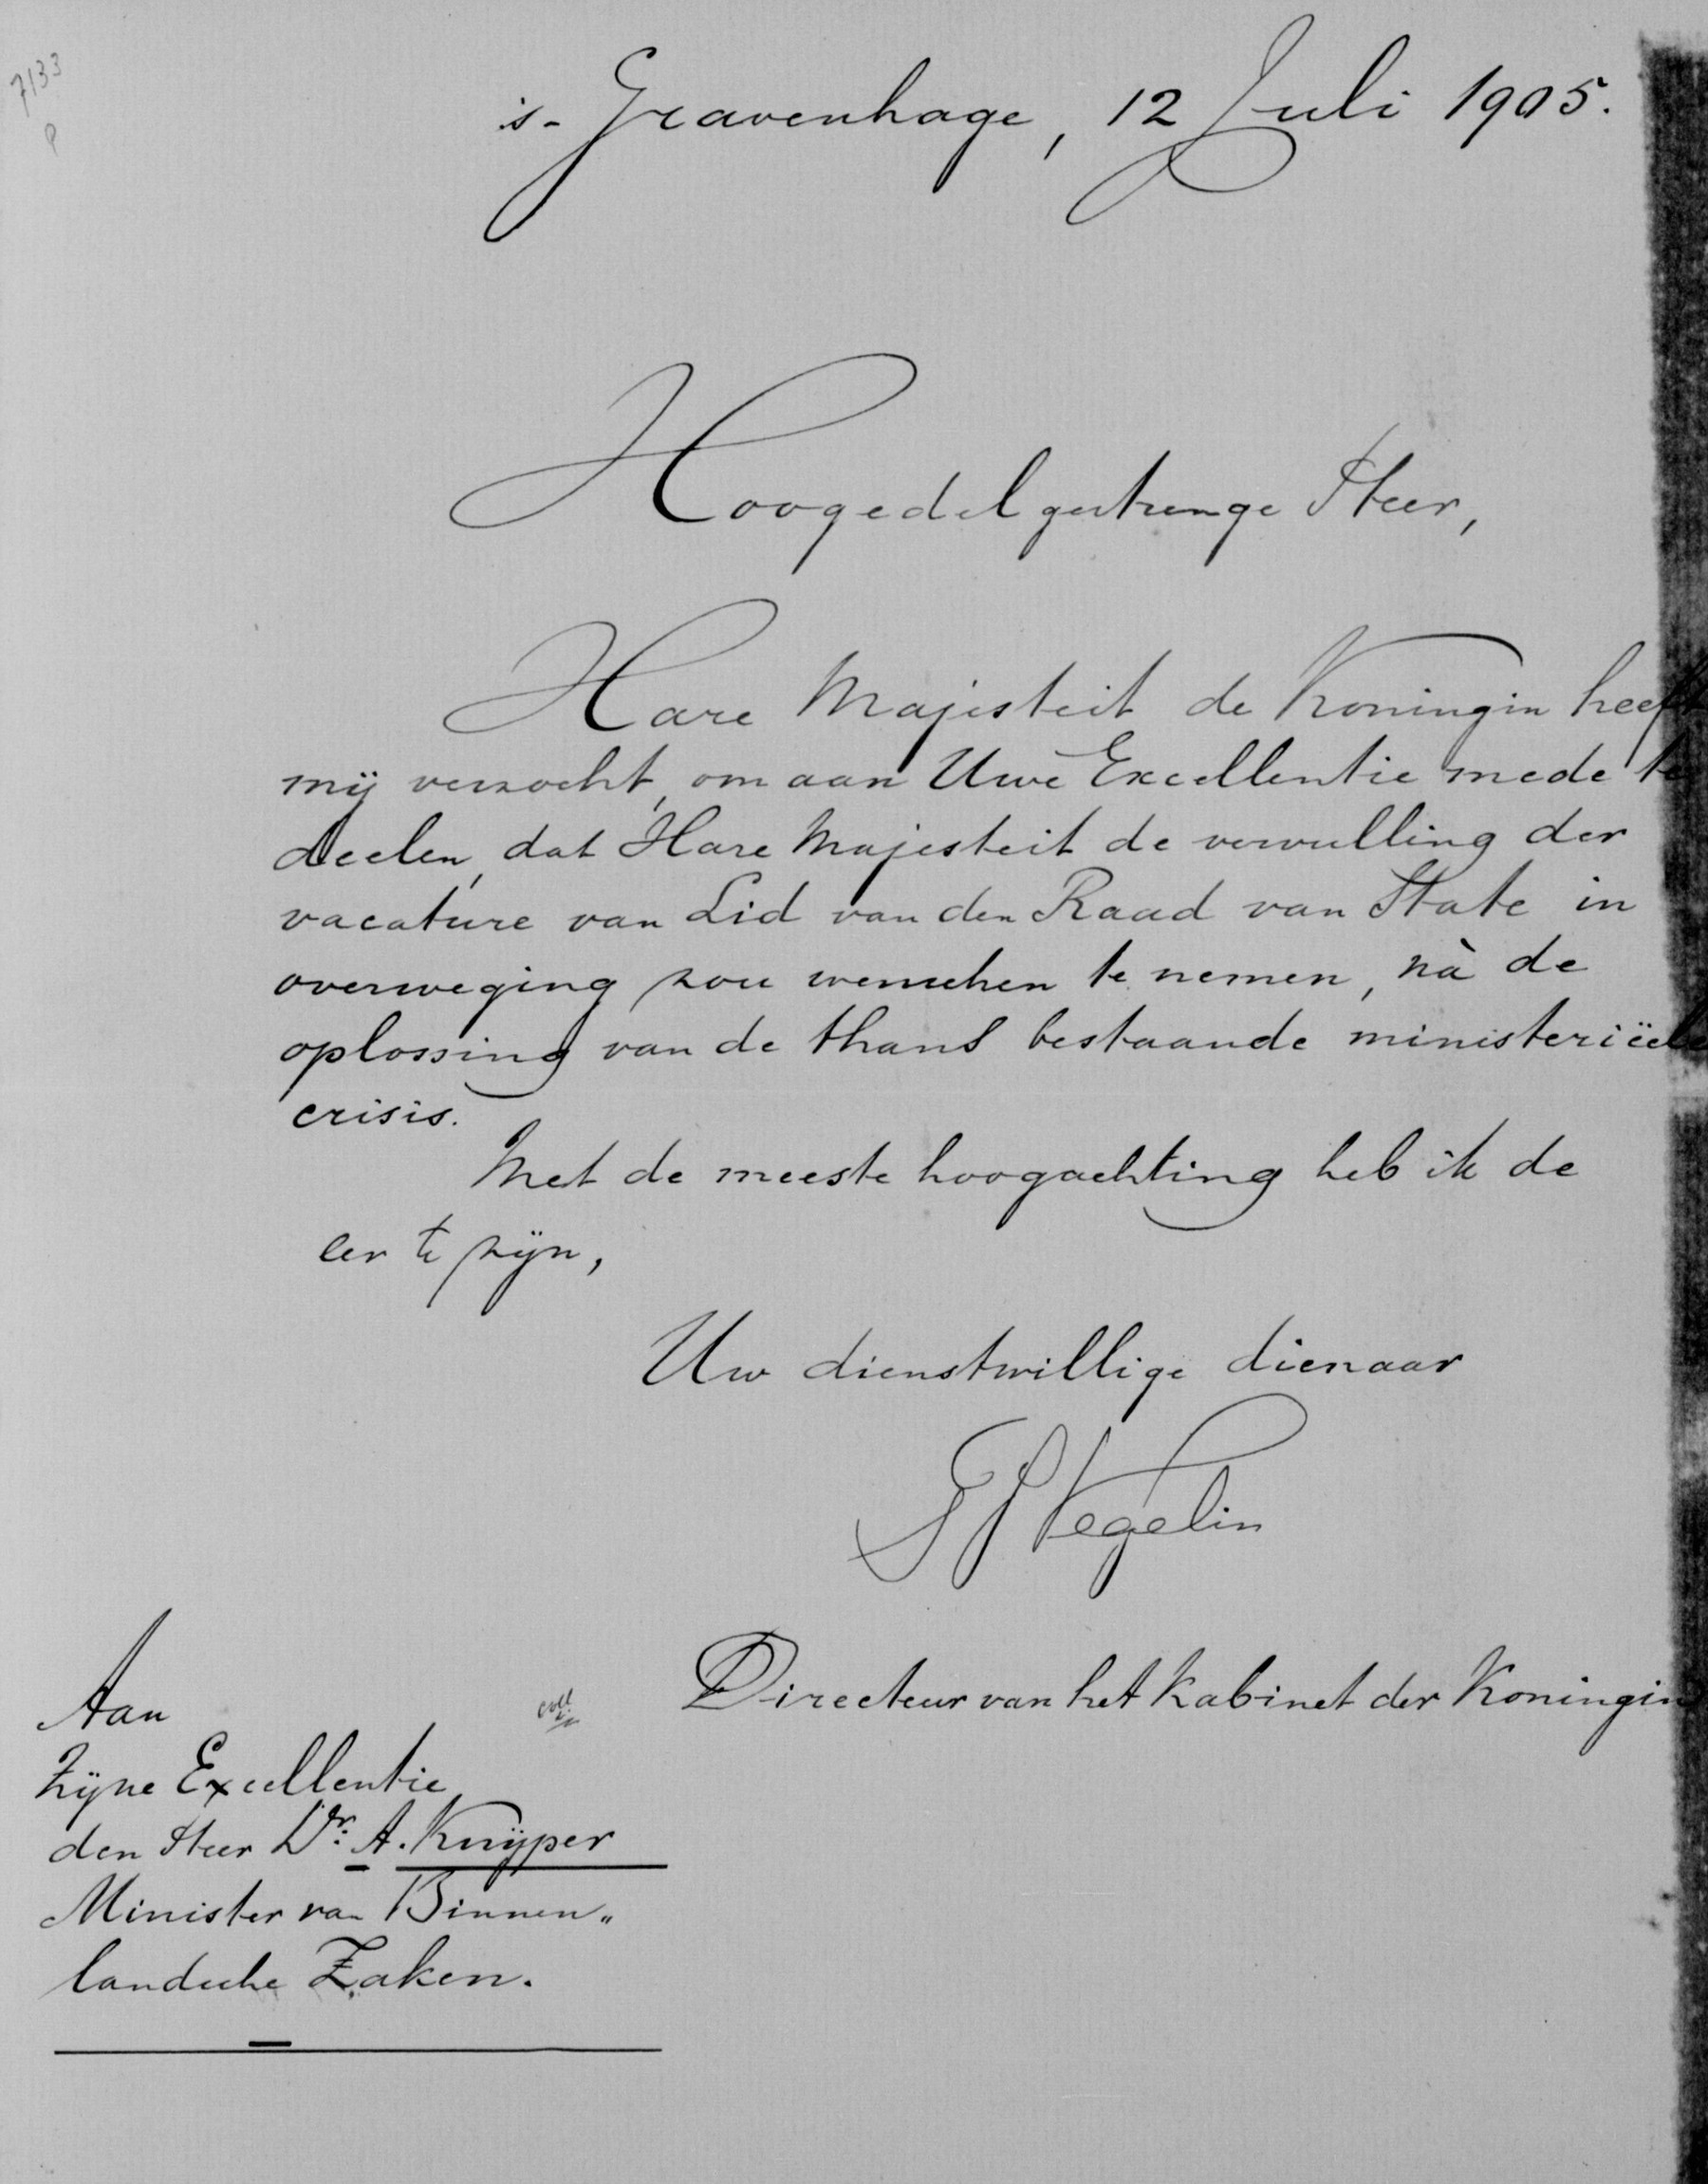 7133
P
's-Gravenhage, 12 Juli 1905.
Hoogedelgestrenge Heer,
Hare Majesteit de Koningin heeft
mij verzocht, om aan Uwe Excellentie mede te
deelen, dat Hare Majesteit de vervulling der
vacature van Lid van den Raad van State in
overweging zou wenschen te nemen, nà de
oplossing van de thans bestaande ministeriëele
crisis.
Met de meeste hoogachting heb ik de
eer te zijn,
Uw dienstwillige dienaar
Vegelin
Directeur van het Kabinet der Koningin
Aan
Zijne Excellentie
den Heer Dr. A. Kuijper
Minister van Binnen„
landsche Zaken.